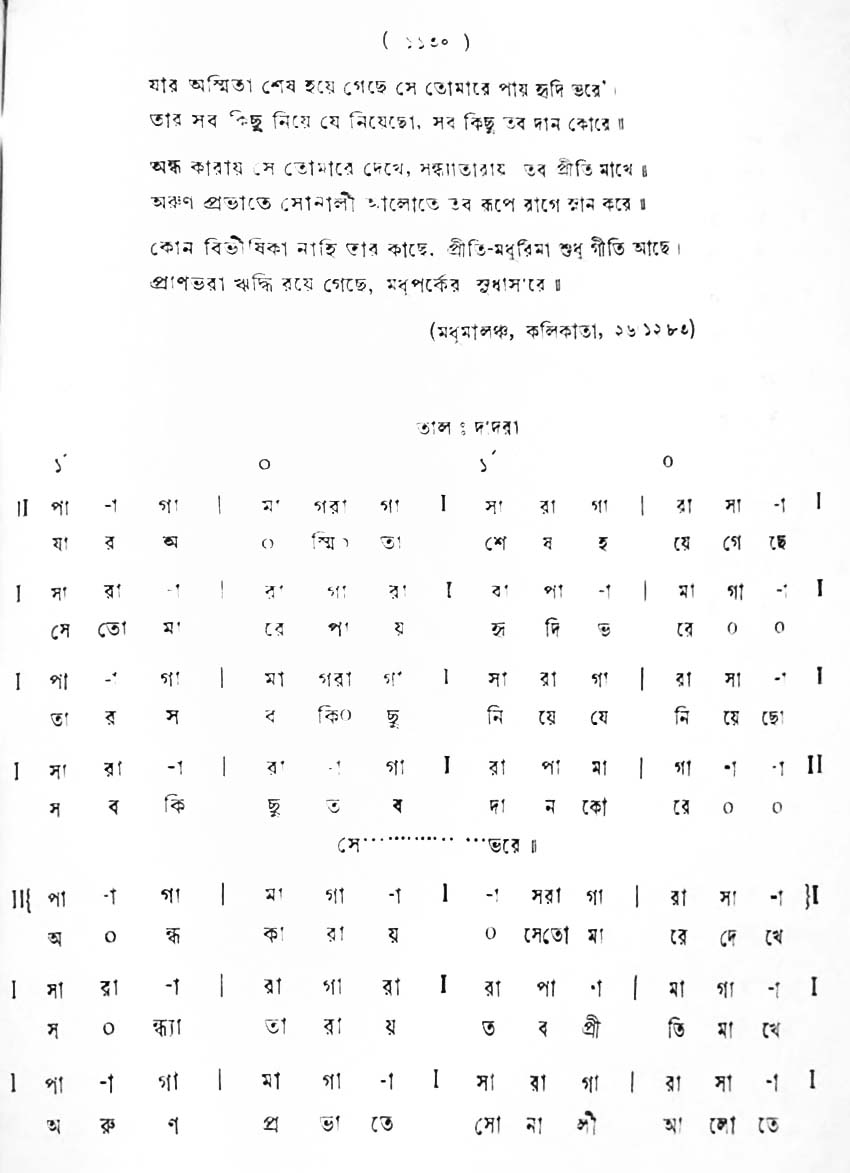 ( ১১৩০ )
যার অস্মিতা শেষ হয়ে গেছে সে তোমারে পায় হৃদি ভরে' ।
তার সব কিছু নিয়ে যে নিয়েছো, সব কিছু তব দান কোরে ॥
অন্ধ কারায় সে তোমারে দেখে, সন্ধ্যাতারায় তব প্রীতি মাখে ॥
অরুণ প্রভাতে সোনালী আলোতে তব রূপে রাগে স্নান করে ॥
কোন বিভীষিকা নাহি তার কাছে, প্রীতি-মধুরিমা শুধু গীতি আছে ।
প্রাণভরা ঋদ্ধি রয়ে গেছে, মধুপর্কের সুধাসারে ॥
(মধুমালঞ্চ, কলিকাতা,
তাল ঃ দাদরা
১´ ০ ১´ ০
II পা -া গা | মা গরা গা I সা রা গা | রা সা -া I
যা র অ ০ স্মি০ তা শে ষ হ য়ে গে ছে
I সা রা -া | রা গা রা I রা পা -া | মা গা -া I
সে তো মা রে পা য় হৃ দি ভ রে ০ ০
I পা -া গা | মা গরা গা I সা রা গা | রা সা -া I
তা র স ব কি০ ছু নি য়ে যে নি য়ে ছো
I সা রা -া | রা -া গা I রা পা মা | গা -া -া II
স ব কি ছু ত ব দা ন কো রে ০ ০
সে·················ভরে ॥
II{ পা -া গা | মা গা -া I -া সরা গা | রা সা -া }I
অ ০ ন্ধ কা রা য় ০ সেতো মা রে দে খে
I সা রা -া | রা গা রা I রা পা -া | মা গা -া I
স ০ ন্ধ্যা তা রা য় ত ব প্রী তি মা খে
I পা -া গা | মা গা -া I সা রা গা | রা সা -া I
অ রু ণ প্র ভা তে সো না লী আ লো তে